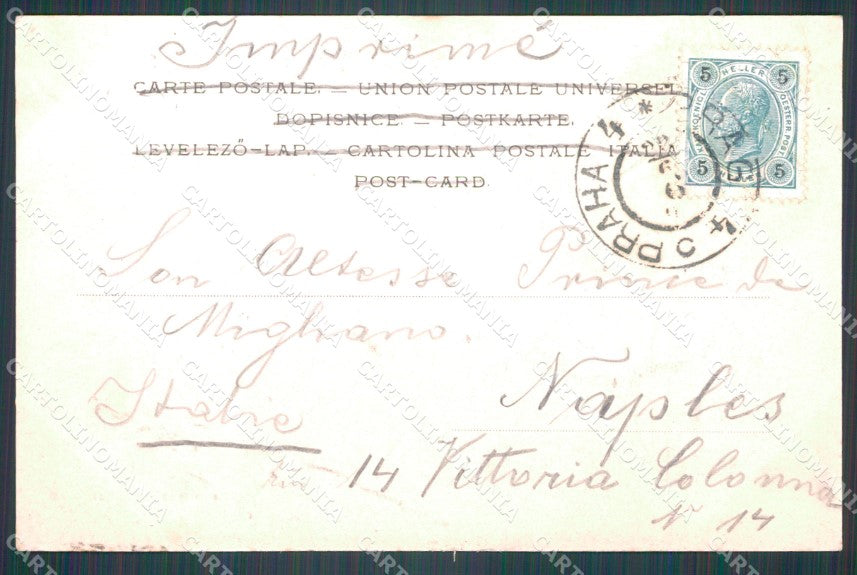 Imprimé
CARTE POSTALE. — UNION POSTALE UNIVERSEL
DOPISNICE. — POSTKARTE.
LEVELEZŐ-LAP. — CARTOLINA POSTALE ITALIA
POST-CARD
5 HELLER 5
5 5
PRAHA 4
PRAG 4
Son Altesse Prince de
Migliano.
Italie
Naples
14 Vittoria Colonna
N 14
CARTOLINOMANIA